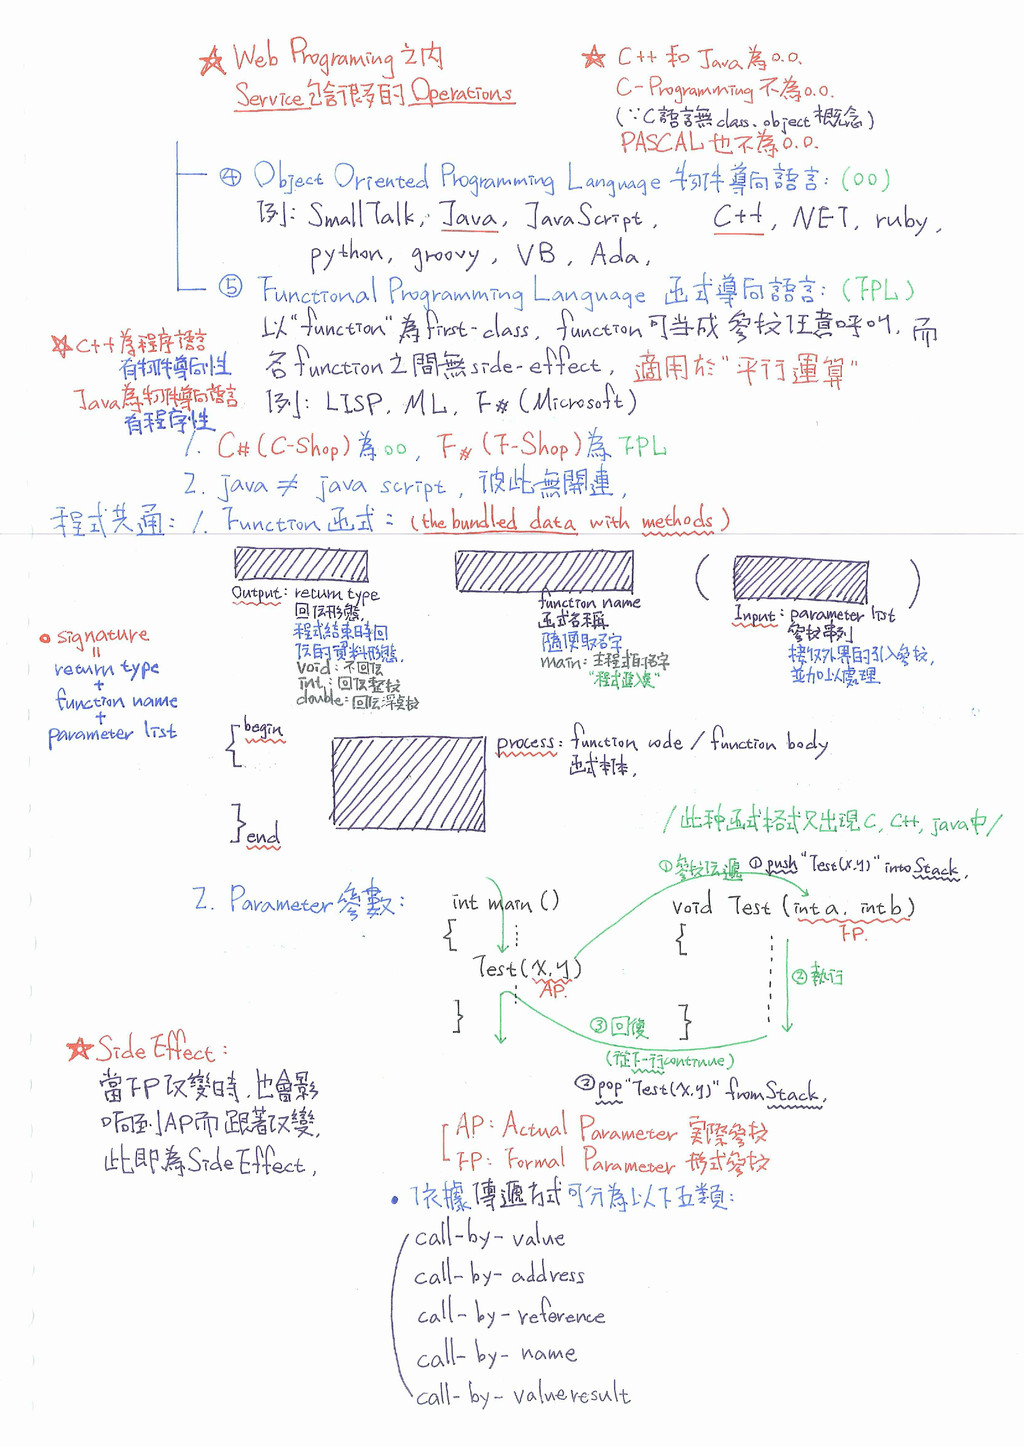 ☆ Web Programing 之內
Service 包含很多的 Operations
☆ C++ 和 Java 為 O.O.
C-Programming 不為 O.O.
(∵C語言無 class、object 概念)
PASCAL 也不為 O.O.
④ Object Oriented Programming Language 物件導向語言: (OO)
例: SmallTalk, Java, JavaScript, C++, NET, ruby,
python, groovy, VB, Ada,
⑤ Functional Programming Language 函式導向語言: (FPL)
以"function"為first-class, function可當成參校任意呼叫, 而
各function之間無side-effect, 適用於"平行運算"
例: LISP, ML, F# (Microsoft)
☆ C++為程序語言
有物件導向性
Java為物件導向語言
有程序性
1. C# (C-Shop) 為OO, F# (F-Shop) 為 FPL
2. java ≠ java script, 彼此無關連,
程式共通: 1. Function 函式: (the bundled data with methods)
Output: return type
回伝形態,
程式結束時回
伝的資料形態,
void: 不回伝
int: 回伝整校
double: 回伝浮点校
function name
函式名稱
隨便取名字
main: 主程式的名字
"程式進入点"
( )
Input: parameter list
參校串列
接收外界的引入參校,
並加以處理
• signature
=
return type
+
function name
+
parameter list
{ begin
} end
process: function code / function body
函式本体,
/此种函式格式又出現 C, C++, java中/
2. Parameter 參數:
int main ()
{
Test(X,Y)
AP.
}
①參校伝遞 ①push "Test(X,Y)" into Stack,
void Test (int a, int b)
FP.
{
②執行
}
③回復
(從下一行continue)
②pop "Test(X,Y)" from Stack,
☆ Side Effect:
當FP改變時, 也會影
响到AP而跟著改變,
此即為Side Effect,
AP: Actual Parameter 實際參校
FP: Formal Parameter 形式參校
• 依據傳遞方式可分為以下五類:
call-by-value
call-by-address
call-by-reference
call-by-name
call-by-valueresult